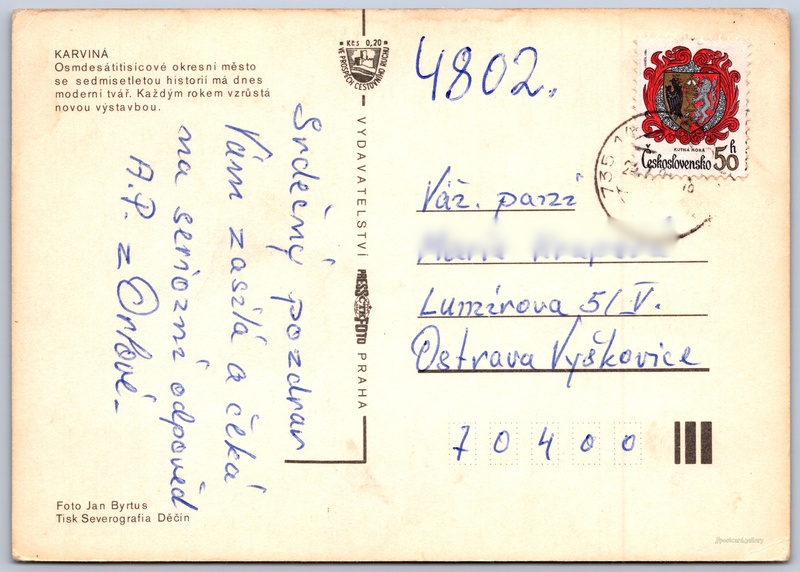 KARVINÁ
Osmdesátitisícové okresní město
se sedmisetletou historií má dnes
moderní tvář. Každým rokem vzrůstá
novou výstavbou.
Srdečný pozdrav
Vám zasílá a čeká
na seriozní odpověd
A.P. z Orlové.
Foto Jan Byrtus
Tisk Severografia Děčín
Kčs 0,20
VE PROSPĚCH CESTOVNÍHO RUCHU
VYDAVATELSTVÍ PRESSFOTO PRAHA
ČTK
4802.
KUTNÁ HORA
Československo 50 h
735 14
Váž. paní
Lumírova 5/V.
Ostrava Vyškovice
70400